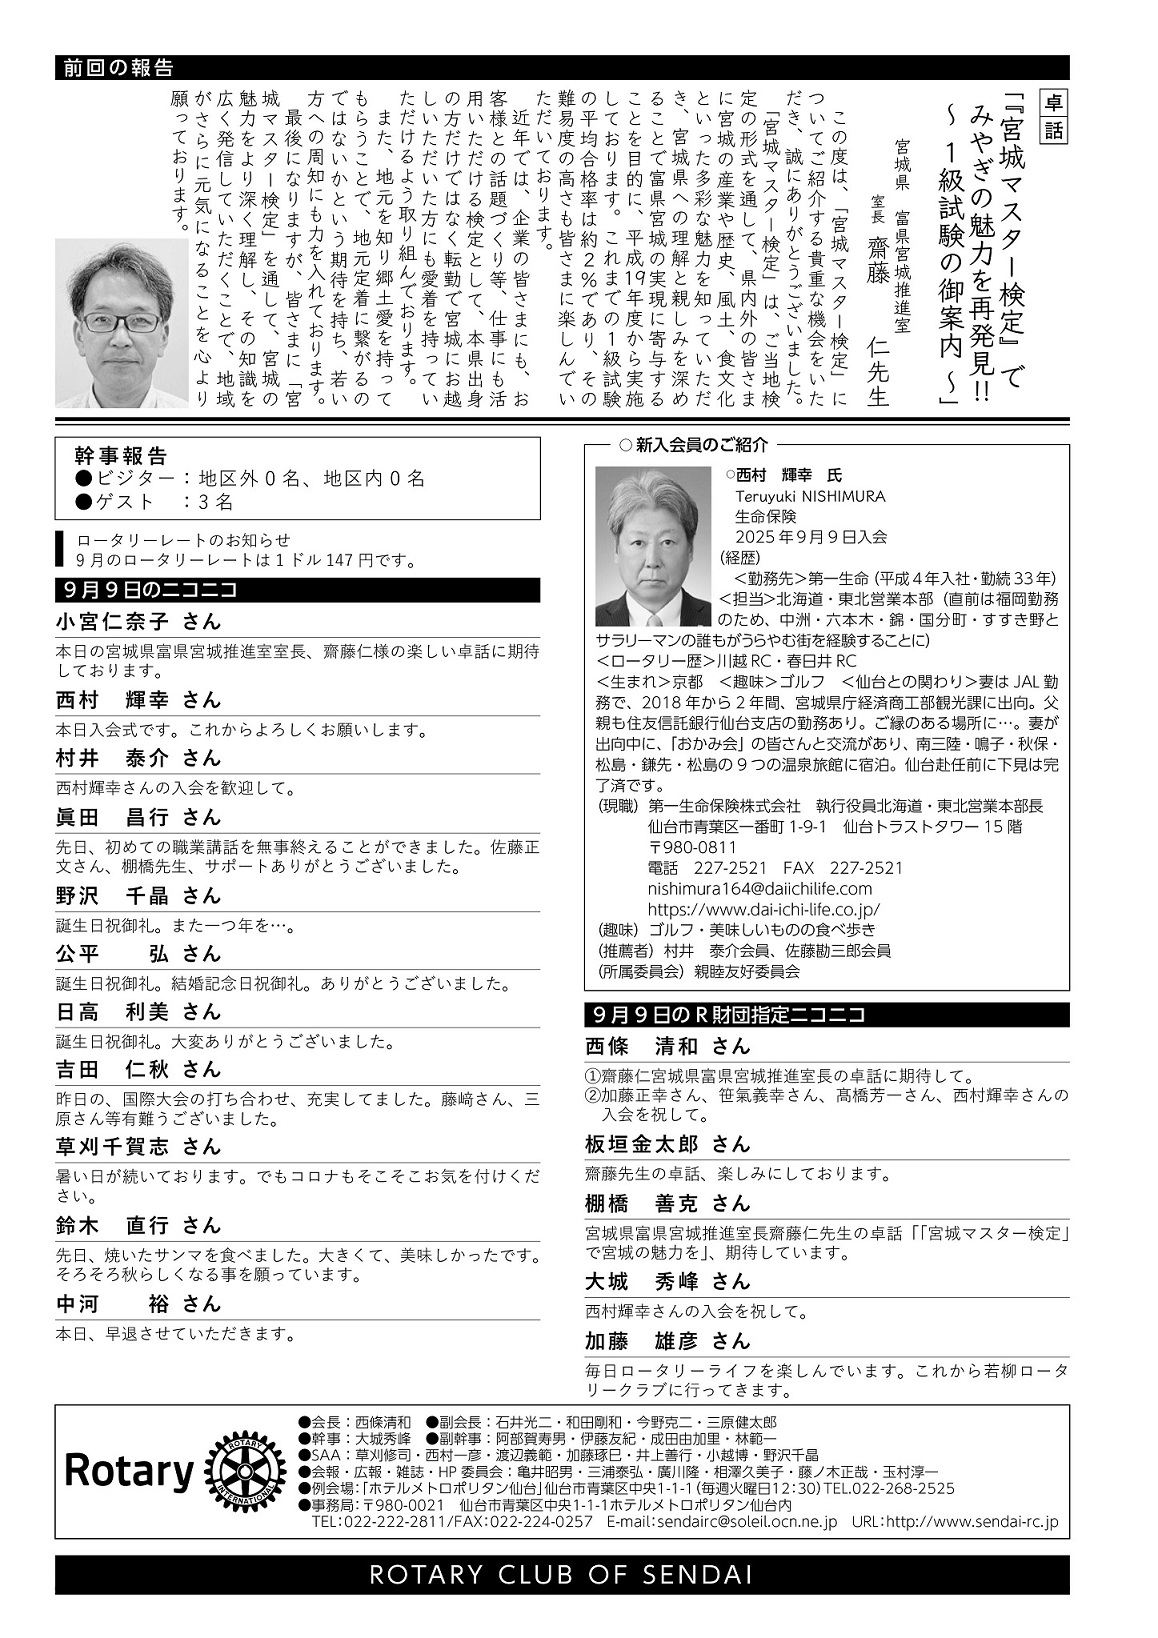 前回の報告
卓話
「『宮城マスター検定』で
みやぎの魅力を再発見!!
～１級試験の御案内～」
宮城県　富県宮城推進室
室長　齋藤　仁先生
この度は、「宮城マスター検定」に
ついてご紹介する貴重な機会をいた
だき、誠にありがとうございました。
「宮城マスター検定」は、ご当地検
定の形式を通して、県内外の皆さま
に宮城の産業や歴史、風土、食文化
といった多彩な魅力を知っていただ
き、宮城県への理解と親しみを深め
ることで富県宮城の実現に寄与する
ことを目的に、平成19年度から実施
しております。これまでの１級試験
の平均合格率は約２％であり、その
難易度の高さも皆さまに楽しんでい
ただいております。
近年では、企業の皆さまにも、お
客様との話題づくり等、仕事にも活
用いただける検定として、本県出身
の方だけではなく転勤で宮城にお越
しいただいた方にも愛着を持ってい
ただけるよう取り組んでおります。
また、地元を知り郷土愛を持って
もらうことで、地元定着に繋がるの
ではないかという期待を持ち、若い
方への周知にも力を入れております。
最後になりますが、皆さまに「宮
城マスター検定」を通して、宮城の
魅力をより深く理解し、その知識を
広く発信していただくことで、地域
がさらに元気になることを心より
願っております。
幹事報告
●ビジター：地区外０名、地区内０名
●ゲスト　：３名
ロータリーレートのお知らせ
９月のロータリーレートは１ドル147円です。
９月９日のニコニコ
小宮仁奈子 さん
本日の宮城県富県宮城推進室室長、齋藤仁様の楽しい卓話に期待
しております。
西村　輝幸 さん
本日入会式です。これからよろしくお願いします。
村井　泰介 さん
西村輝幸さんの入会を歓迎して。
眞田　昌行 さん
先日、初めての職業講話を無事終えることができました。佐藤正
文さん、棚橋先生、サポートありがとうございました。
野沢　千晶 さん
誕生日祝御礼。また一つ年を…。
公平　　弘 さん
誕生日祝御礼。結婚記念日祝御礼。ありがとうございました。
日高　利美 さん
誕生日祝御礼。大変ありがとうございました。
吉田　仁秋 さん
昨日の、国際大会の打ち合わせ、充実してました。藤﨑さん、三
原さん等有難うございました。
草刈千賀志 さん
暑い日が続いております。でもコロナもそこそこお気を付けくだ
さい。
鈴木　直行 さん
先日、焼いたサンマを食べました。大きくて、美味しかったです。
そろそろ秋らしくなる事を願っています。
中河　　裕 さん
本日、早退させていただきます。
○新入会員のご紹介
○西村　輝幸　氏
Teruyuki NISHIMURA
生命保険
2025年９月９日入会
（経歴）
＜勤務先＞第一生命（平成４年入社・勤続33年）
＜担当＞北海道・東北営業本部（直前は福岡勤務
のため、中洲・六本木・錦・国分町・すすき野と
サラリーマンの誰もがうらやむ街を経験することに）
＜ロータリー歴＞川越RC・春日井RC
＜生まれ＞京都　＜趣味＞ゴルフ　＜仙台との関わり＞妻はJAL勤
務で、2018年から２年間、宮城県庁経済商工部観光課に出向。父
親も住友信託銀行仙台支店の勤務あり。ご縁のある場所に…。妻が
出向中に、「おかみ会」の皆さんと交流があり、南三陸・鳴子・秋保・
松島・鎌先・松島の９つの温泉旅館に宿泊。仙台赴任前に下見は完
了済です。
（現職）第一生命保険株式会社　執行役員北海道・東北営業本部長
仙台市青葉区一番町1-9-1　仙台トラストタワー15階
〒980-0811
電話　227-2521　FAX　227-2521
nishimura164@daiichilife.com
https://www.dai-ichi-life.co.jp/
（趣味）ゴルフ・美味しいものの食べ歩き
（推薦者）村井　泰介会員、佐藤勘三郎会員
（所属委員会）親睦友好委員会
９月９日のＲ財団指定ニコニコ
西條　清和 さん
①齋藤仁宮城県富県宮城推進室長の卓話に期待して。
②加藤正幸さん、笹氣義幸さん、髙橋芳一さん、西村輝幸さんの
入会を祝して。
板垣金太郎 さん
齋藤先生の卓話、楽しみにしております。
棚橋　善克 さん
宮城県富県宮城推進室長齋藤仁先生の卓話「「宮城マスター検定」
で宮城の魅力を」、期待しています。
大城　秀峰 さん
西村輝幸さんの入会を祝して。
加藤　雄彦 さん
毎日ロータリーライフを楽しんでいます。これから若柳ロータ
リークラブに行ってきます。
Rotary
ROTARY INTERNATIONAL
●会長：西條清和　●副会長：石井光二・和田剛和・今野克二・三原健太郎
●幹事：大城秀峰　●副幹事：阿部賀寿男・伊藤友紀・成田由加里・林範一
●SAA：草刈修司・西村一彦・渡辺義範・加藤琢巳・井上善行・小越博・野沢千晶
●会報・広報・雑誌・HP委員会：亀井昭男・三浦泰弘・廣川隆・相澤久美子・藤ノ木正哉・玉村淳一
●例会場：「ホテルメトロポリタン仙台」仙台市青葉区中央1-1-1（毎週火曜日12：30）TEL.022-268-2525
●事務局：〒980-0021　仙台市青葉区中央1-1-1ホテルメトロポリタン仙台内
TEL：022-222-2811/FAX：022-224-0257　E-mail：sendairc@soleil.ocn.ne.jp　URL：http://www.sendai-rc.jp
ROTARY CLUB OF SENDAI